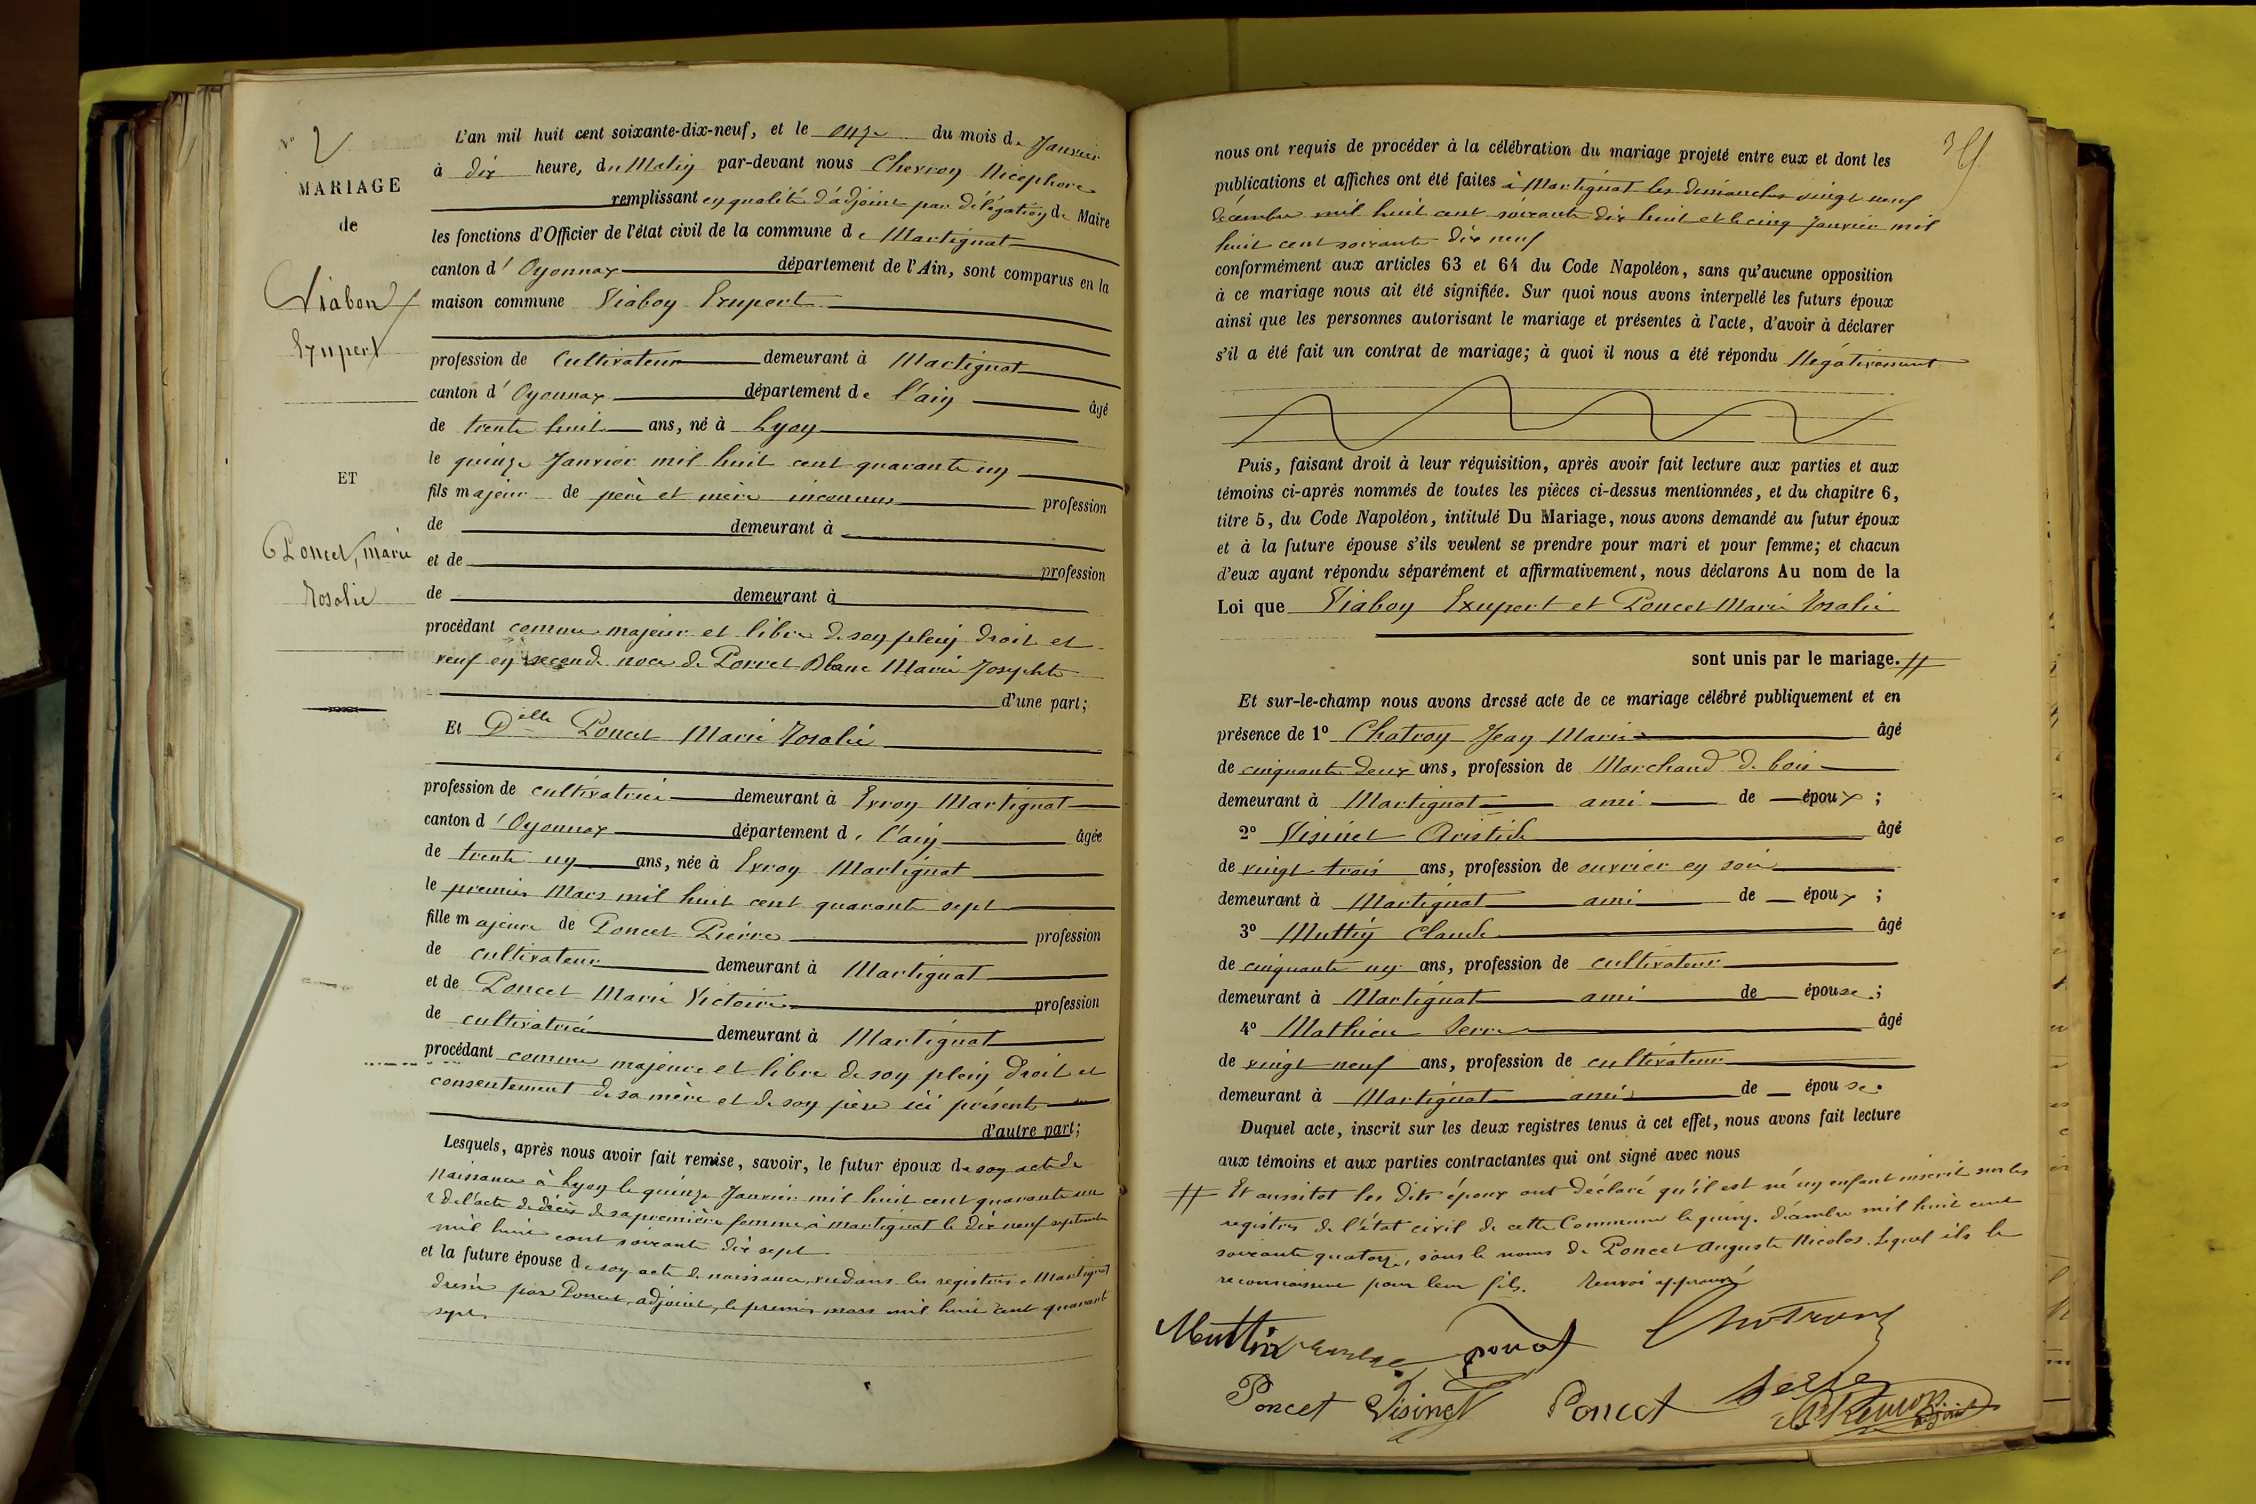 N° 2
MARIAGE
de
Viabon
Exupert
ET
Poncet, marie
Rosalie
L'an mil huit cent soixante-dix-neuf, et le onze du mois de Janvier
à dix heure, du Matin par-devant nous Chevron Nicéphore
remplissant en qualité d'adjoint par délégation de Maire
les fonctions d'Officier de l'état civil de la commune de Martignat
canton d'Oyonnax département de l'Ain, sont comparus en la
maison commune Viabon Exupert
profession de Cultivateur demeurant à Martignat
canton d'Oyonnax département de l'ain âgé
de trente huit ans, né à Lyon
le quinze Janvier mil huit cent quarante un
fils majeur de père et mère inconnus profession
de demeurant à
et de profession
de demeurant à
procédant comme majeur et libre de son plein droit et
veuf en seconde noce de Porret Blanc Marie Josephte
d'une part;
Et Delle Poncet Marie Rosalie
profession de cultivatrice demeurant à Evron Martignat
canton d'Oyonnax département de l'ain âgée
de trente un ans, née à Evron Martignat
le premier Mars mil huit cent quarante sept
fille majeure de Poncet Pierre profession
de cultivateur demeurant à Martignat
et de Poncet Marie Victoire profession
de cultivatrice demeurant à Martignat
procédant comme majeure et libre de son plein droit et
consentement de sa mère et de son père ici présents
d'autre part;
Lesquels, après nous avoir fait remise, savoir, le futur époux de son acte de
Naissance à Lyon le quinze Janvier mil huit cent quarante un
& de l'acte de décès de sa première femme, à Martignat le dix neuf septembre
mil huit cent soixante dix sept
et la future épouse de son acte de naissance, vu dans les registres de Martignat
dressé par Poncet, adjoint, le premier mars mil huit cent quarante
sept.
39
nous ont requis de procéder à la célébration du mariage projeté entre eux et dont les
publications et affiches ont été faites à Martignat les dimanches vingt neuf
décembre mil huit cent soixante dix huit et le cinq Janvier mil
huit cent soixante dix neuf
conformément aux articles 63 et 64 du Code Napoléon, sans qu'aucune opposition
à ce mariage nous ait été signifiée. Sur quoi nous avons interpellé les futurs époux
ainsi que les personnes autorisant le mariage et présentes à l'acte, d'avoir à déclarer
s'il a été fait un contrat de mariage; à quoi il nous a été répondu Négativement
Puis, faisant droit à leur réquisition, après avoir fait lecture aux parties et aux
témoins ci-après nommés de toutes les pièces ci-dessus mentionnées, et du chapitre 6,
titre 5, du Code Napoléon, intitulé Du Mariage, nous avons demandé au futur époux
et à la future épouse s'ils veulent se prendre pour mari et pour femme; et chacun
d'eux ayant répondu séparément et affirmativement, nous déclarons Au nom de la
Loi que Viabon Exupert et Poncet Marie Rosalie
sont unis par le mariage. #
Et sur-le-champ nous avons dressé acte de ce mariage célébré publiquement et en
présence de 1° Chatron Jean Marie âgé
de cinquante deux ans, profession de Marchand de bois
demeurant à Martignat ami de époux ;
2° Visinet Aristide âgé
de vingt trois ans, profession de ouvrier en soie
demeurant à Martignat ami de époux ;
3° Muttin Claude âgé
de cinquante un ans, profession de cultivateur
demeurant à Martignat ami de épouse ;
4° Mathieu Serre âgé
de vingt neuf ans, profession de cultivateur
demeurant à Martignat ami de épouse.
Duquel acte, inscrit sur les deux registres tenus à cet effet, nous avons fait lecture
aux témoins et aux parties contractantes qui ont signé avec nous
# Et aussitot les dits époux ont déclaré qu'il est né un enfant inscrit sur les
registres de l'état civil de cette Commune le quinze décembre mil huit cent
soixante quatorze, sous le noms de Poncet Auguste Nicolas. Lequel ils le
reconnaissent pour leur fils. Renvoi approuvé
Muttin poncet Chatron
Poncet Visinet Poncet Serre
Chevron
adjoint